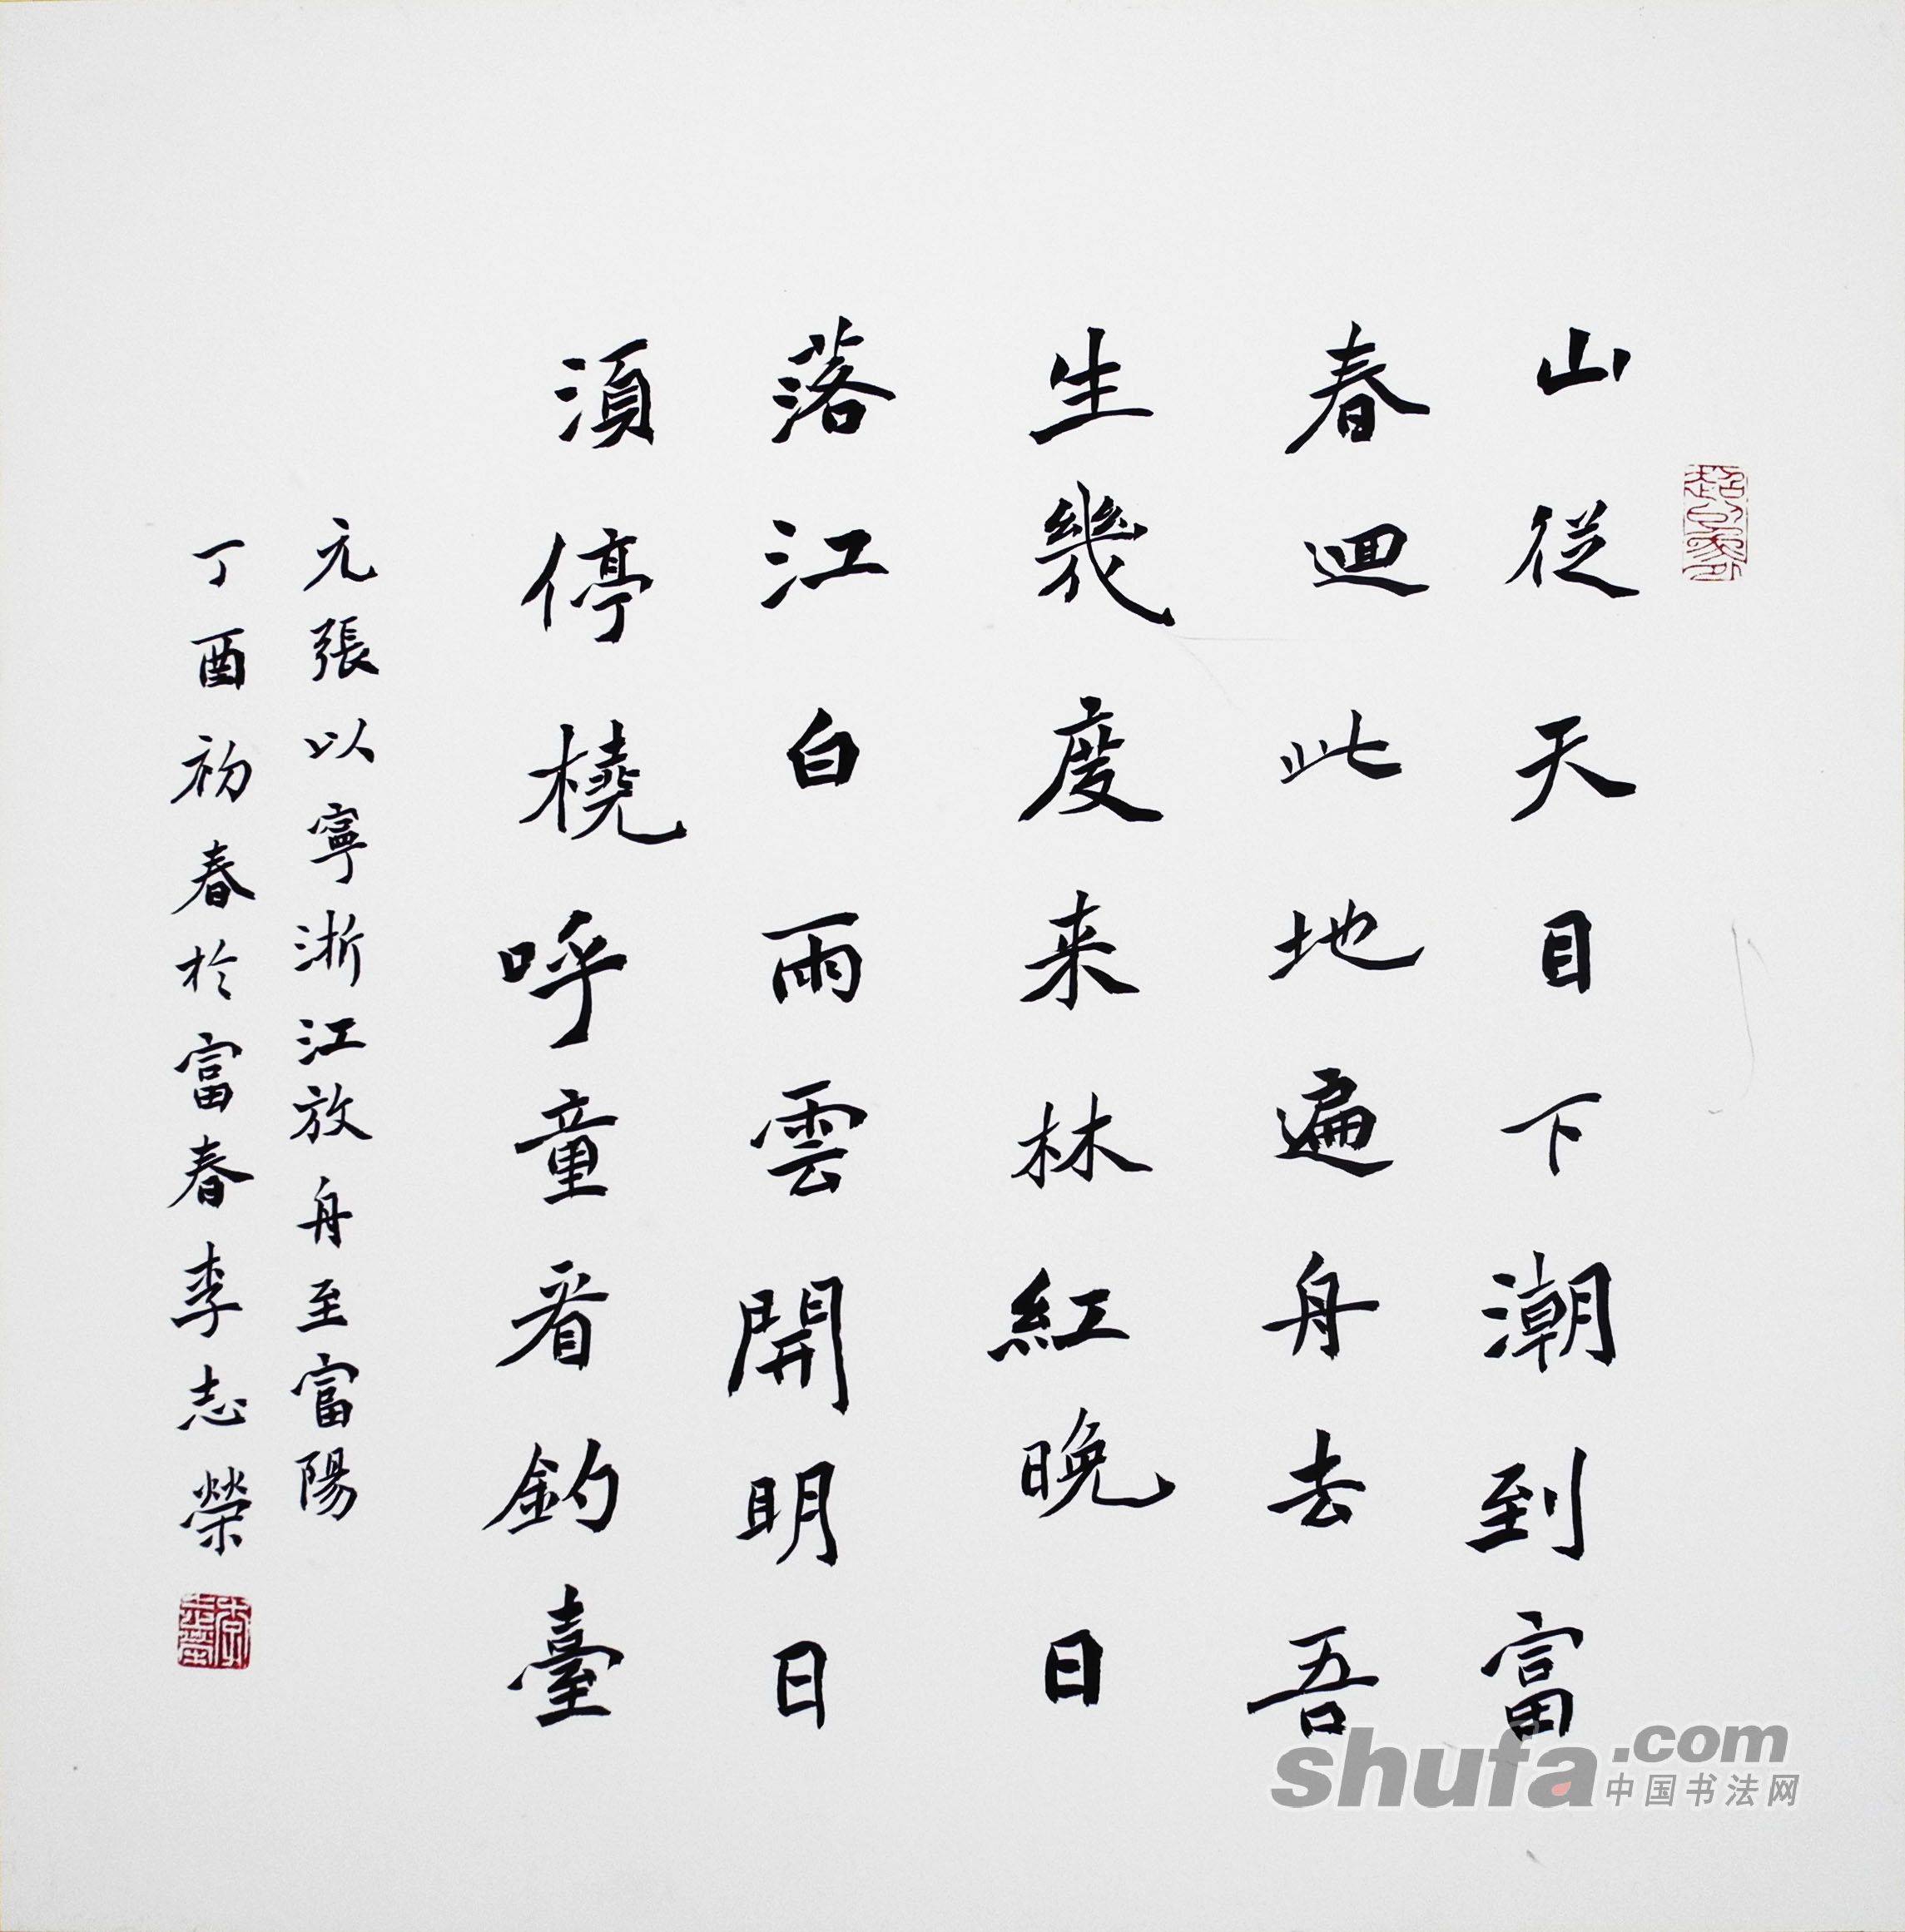 山從天目下潮到富
春迴此地遍舟去吾
生幾度来林紅晚日
落江白雨雲開明日
須停橈呼童看釣臺
元張以寧浙江放舟至富陽
丁酉初春於富春李志榮
李志榮
shufa.com
中国书法网